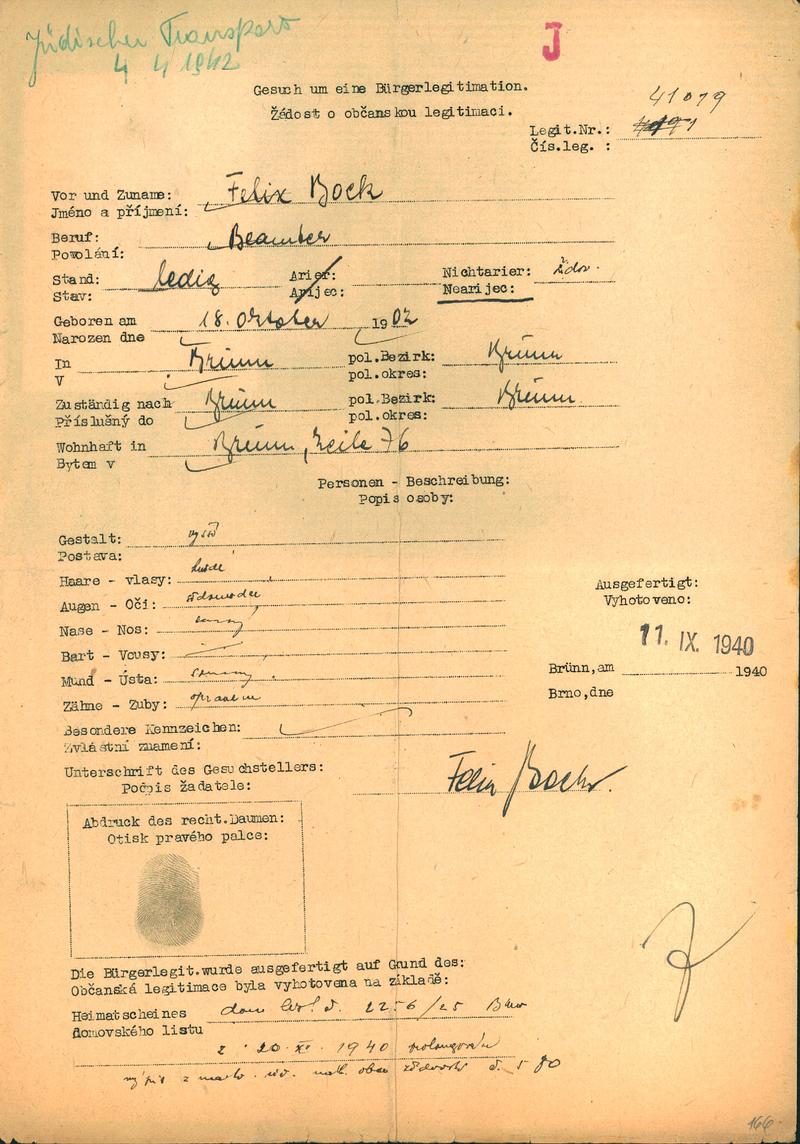 Jüdischer Transport
4 4 1942
J
Gesuch um eine Bürgerlegitimation.
Žádost o občanskou legitimaci.
41079
Legit.Nr.:
Čís.leg. :
Vor und Zuname: Felix Bock
Jméno a příjmení:
Beruf: Beamter
Povolání:
Stand: ledig Arier: Nichtarier: židov.
Stav: Arijec: Nearijec:
Geboren am 18. Oktober 1902
Narozen dne
In Brünn pol.Bezirk: Brünn
V pol.okres:
Zuständig nach Brünn pol.Bezirk: Brünn
Příslušný do pol.okres:
Wohnhaft in Brünn, Zeile 76
Bytem v
Personen - Beschreibung:
Popis osoby:
Gestalt:
Postava:
Haare - vlasy:
Augen - Oči:
Nase - Nos:
Bart - Vousy:
Mund - Ústa:
Zähne - Zuby:
Besondere Kennzeichen:
Zvláštní znamení:
Ausgefertigt:
Vyhotoveno:
11. IX. 1940
Brünn,am 1940
Brno,dne
Unterschrift des Gesuchstellers: Felix Bock
Počpis žadatele:
Abdruck des recht.Daumen:
Otisk pravého palce:
Die Bürgerlegit.wurde ausgefertigt auf Grund des:
Občanská legitimace byla vyhotovena na základě:
Heimatscheines dom. č. 2256/25 Brno
domovského listu
z 20. XI. 1940
výpis z č. 580
166